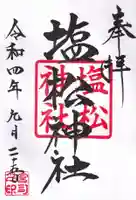 奉拝
塩松神社
塩松
神社
令和四年九月二十五日